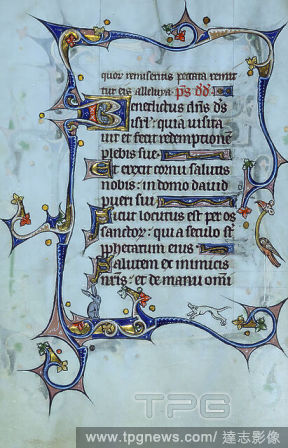 quor remiseritis peccata remit
tur eis alleluya. ps dd
Benedictus dns ds
isrl: quia visita
vit et fecit redemptionem
plebis sue.
Et erexit cornu salutis
nobis: in domo david
pueri sui
Sicut locutus est per os
sanctor: qui a seculo st
pphetarum eius
Salutem ex inimicis
nris: et de manu omni
TPG
www.tpgnews.com/ 達志影像